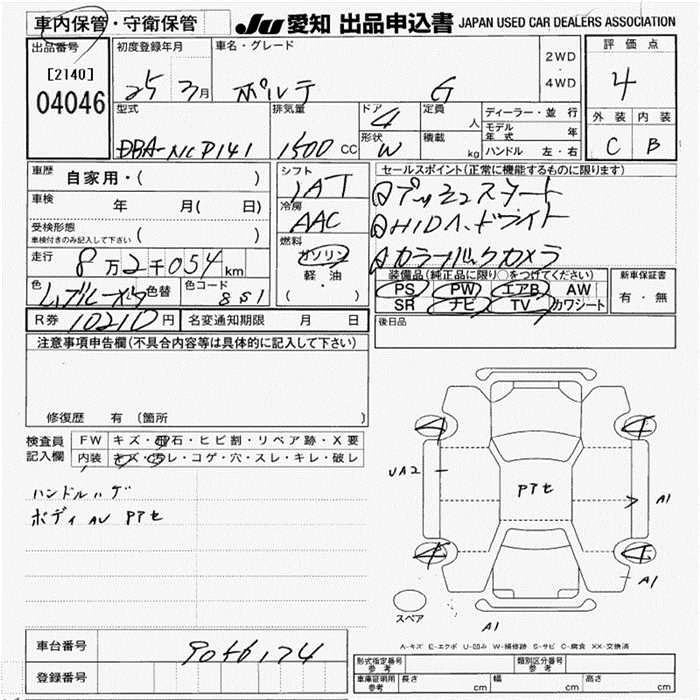 車内保管・守衛保管
JU 愛知 出品申込書 JAPAN USED CAR DEALERS ASSOCIATION
出品番号
[2140]
04046
初度登録年月
25 3月
車名・グレード
ポルテ G
2WD
・
4WD
評価点
4
外装 内装
C B
型式
DBA-NCP141
排気量
1500 CC
ドア
4
形状
W
定員
人
積載
kg
ディーラー・並行
モデル年式 年
ハンドル 左・右
車歴 自家用・( )
車検 年 月( 日)
受検形態
車検付きのみ記入して下さい ( )
走行 8万2千054km
色 替色
色コード 8S1
シフト
IAT
冷房
AAC
燃料
ガソリン
軽・油
( ・ )
セールスポイント(正常に機能するものに限ります)
プッシュスタート
HIDヘッドライト
カラーバックカメラ
装備品(純正品に限り○をつけてください)
PS PW エアB AW
SR ナビ TV カワシート
新車保証書
有・無
R券 10210円
名変通知期限 月 日
後日品
注意事項申告欄(不具合内容等は具体的に記入して下さい)
修復歴 有 〔箇所 〕
検査員記入欄
FW キズ・飛石・ヒビ割・リペア跡・X要
内装 キズ・汚レ・コゲ・穴・スレ・キレ・破レ
ハンドルハゲ
ボディAU Pアセ
4 4
UA2
Pアセ
A1
4 4
A1
スペア
A1
A-キズ E-エクボ U-凹み W-補修跡 S-サビ C-腐食 XX-交換済
車台番号 9056174
登録番号
形式指定番号 参考
類別区分番号 参考
車庫証明用 参考 長さ cm 幅 cm 高さ cm